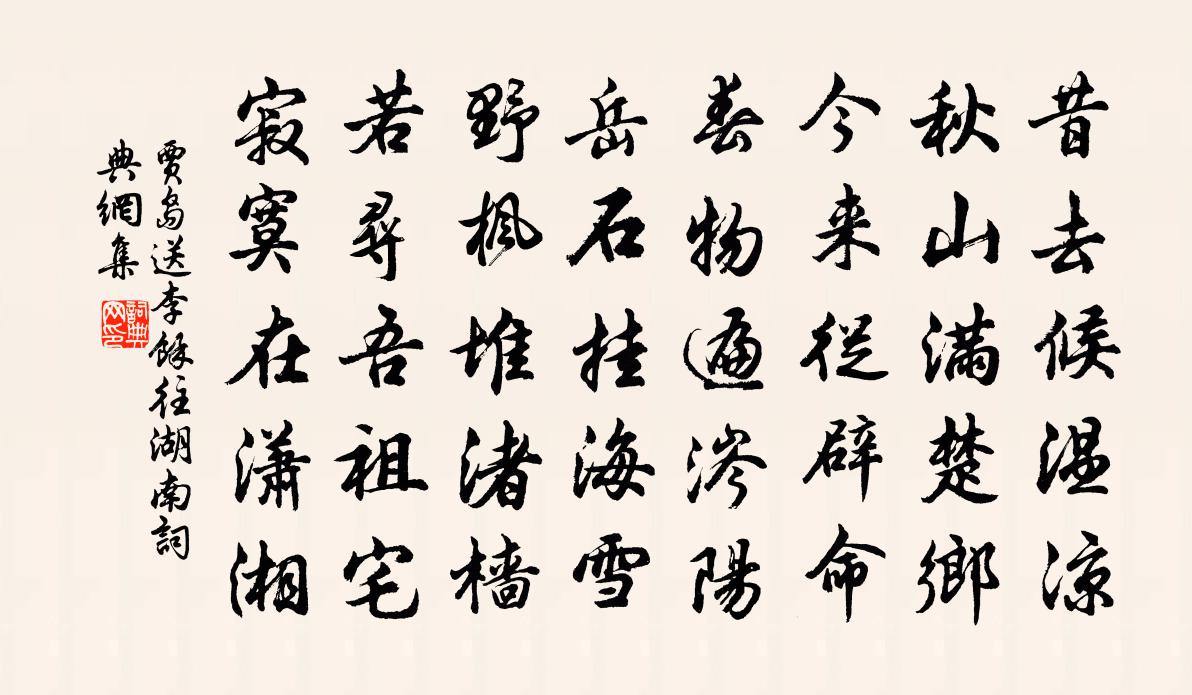 昔去候温涼
秋山滿楚鄉
今来從辟命
春物遍涔陽
岳石挂海雪
野楓堆渚檣
若尋吾祖宅
寂寞在瀟湘
賈島送李餘往湖南詞
典網集
詞典
网印